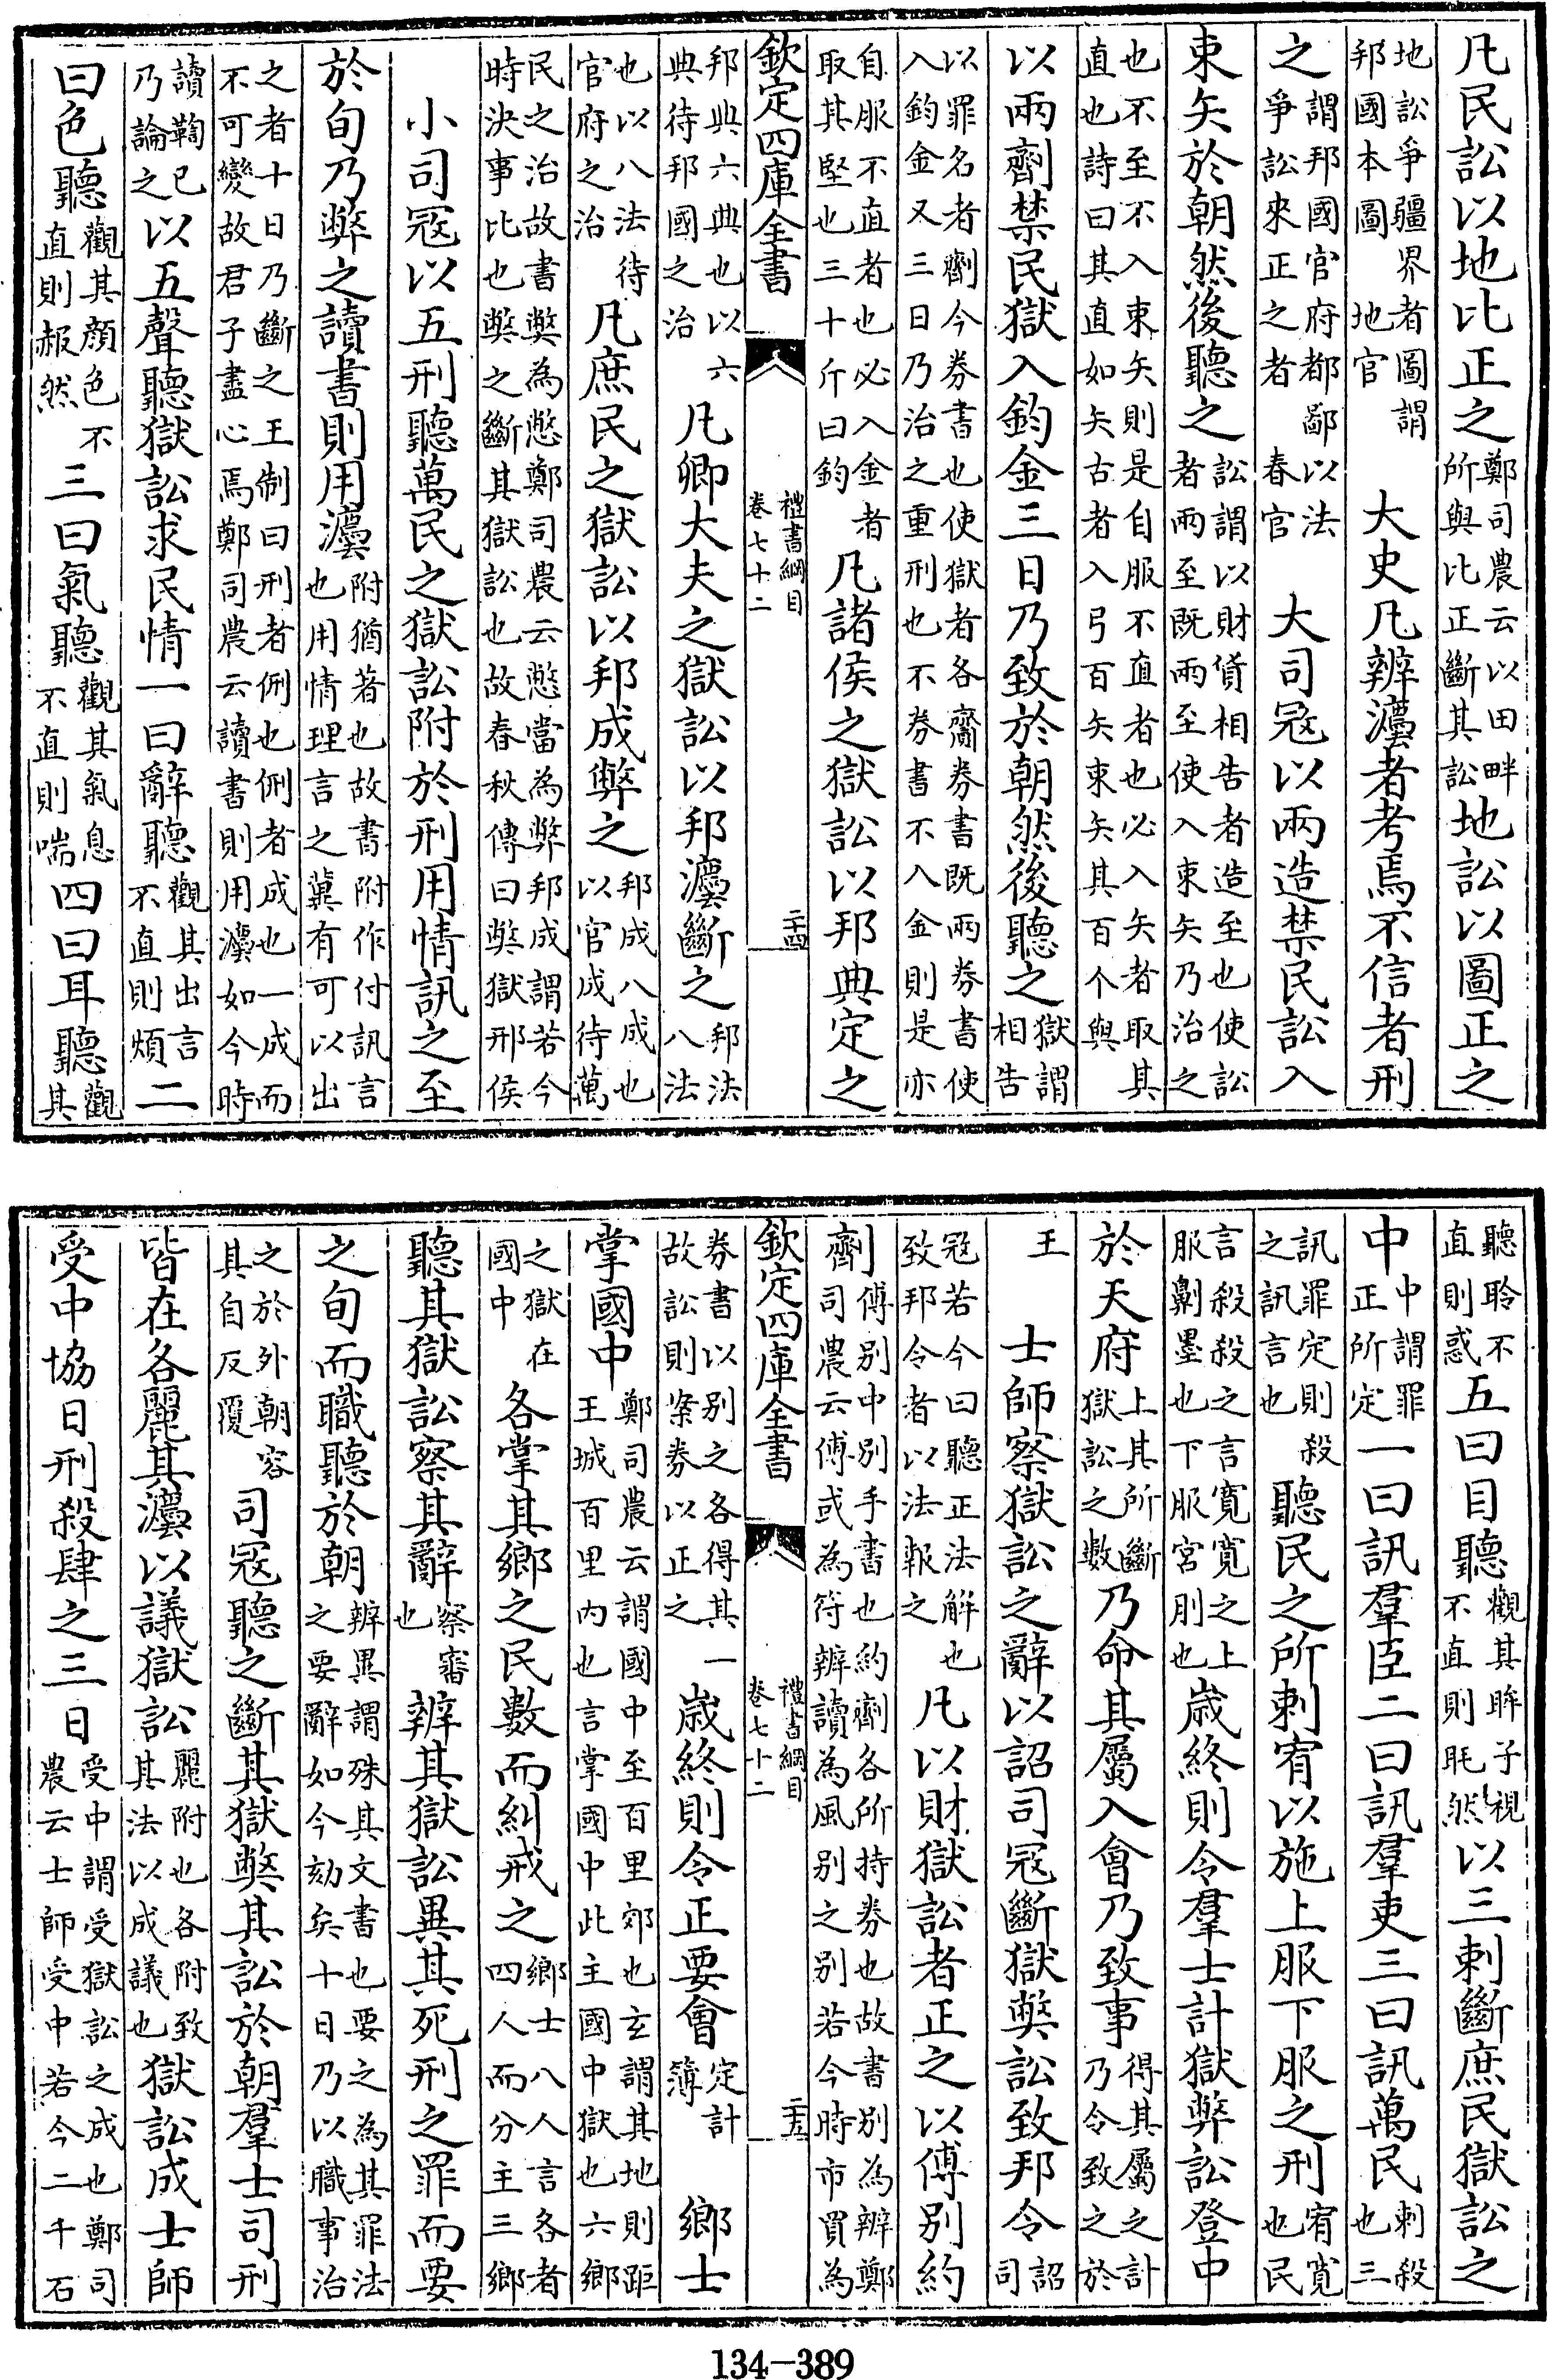 凡民訟以地比正之鄭司農云以田畔所與比正斷其訟地訟以圖正之
地訟爭疆界者圖謂邦國本圖 地官 大史凡辨灋者考焉不信者刑
之謂邦國官府都鄙以法爭訟來正之者 春官 大司冦以兩造禁民訟入
束矢於朝然後聽之訟謂以財貨相告者造至也使訟者兩至既兩至使入束矢乃治之
也不至不入束矢則是自服不直者也必入矢者取其直也詩曰其直如矢古者入弓百矢束矢其百个與
以兩劑禁民獄入鈞金三日乃致於朝然後聽之獄謂相告
以罪名者劑今券書也使獄者各齎券書既兩券書使入鈞金又三日乃治之重刑也不券書不入金則是亦
自服不直者也必入金者取其堅也三十斤曰鈞 凡諸侯之獄訟以邦典定之
欽定四庫全書 禮書綱目 卷七十二 二十四
邦典六典也以六典待邦國之治 凡卿大夫之獄訟以邦灋斷之邦法八法
也以八法待官府之治 凡庶民之獄訟以邦成弊之邦成八成也以官成待萬
民之治故書弊為憋鄭司農云憋當為弊邦成謂若今時決事比也弊之斷其獄訟也故春秋傳曰弊獄邢侯
小司冦以五刑聽萬民之獄訟附於刑用情訊之至
於旬乃弊之讀書則用灋附猶著也故書附作付訊言也用情理言之冀有可以出
之者十日乃斷之王制曰刑者侀也侀者成也一成而不可變故君子盡心焉鄭司農云讀書則用灋如今時
讀鞫已乃論之以五聲聽獄訟求民情一曰辭聽觀其出言不直則煩二
曰色聽觀其顔色不直則赧然三曰氣聽觀其氣息不直則喘四曰耳聽觀其
聽聆不直則惑五曰目聽觀其眸子視不直則眊然以三刺斷庶民獄訟之
中中謂罪正所定一曰訊羣臣二曰訊羣吏三曰訊萬民刺殺也三
訊罪定則殺之訊言也 聽民之所刺宥以施上服下服之刑宥寬也民
言殺殺之言寬寬之上服劓墨也下服宮刖也歲終則令羣士計獄弊訟登中
於天府上其所斷獄訟之數乃命其屬入會乃致事得其屬之計乃令致之於
王 士師察獄訟之辭以詔司冦斷獄弊訟致邦令詔司
冦若今曰聽正法解也致邦令者以法報之 凡以財獄訟者正之以傅別約
劑傅別中別手書也約劑各所持券也故書別為辨鄭司農云傅或為符辨讀為風別之別若今時市買為
欽定四庫全書 禮書綱目 卷七十二 二十五
券書以別之各得其一故訟則案券以正之 歲終則令正要會定計簿 鄉士
掌國中鄭司農云謂國中至百里郊也玄謂其地則距王城百里內也言掌國中此主國中獄也六鄉
之獄在國中 各掌其鄉之民數而糾戒之鄉士八人言各者四人而分主三鄉
聽其獄訟察其辭察審也 辨其獄訟異其死刑之罪而要
之旬而職聽於朝辨異謂殊其文書也要之為其罪法之要辭如今劾矣十日乃以職事治
之於外朝容其自反覆 司冦聽之斷其獄弊其訟於朝羣士司刑
皆在各麗其灋以議獄訟麗附也各附致其法以成議也獄訟成士師
受中協日刑殺肆之三日受中謂受獄訟之成也鄭司農云士師受中若今二千石
134-389